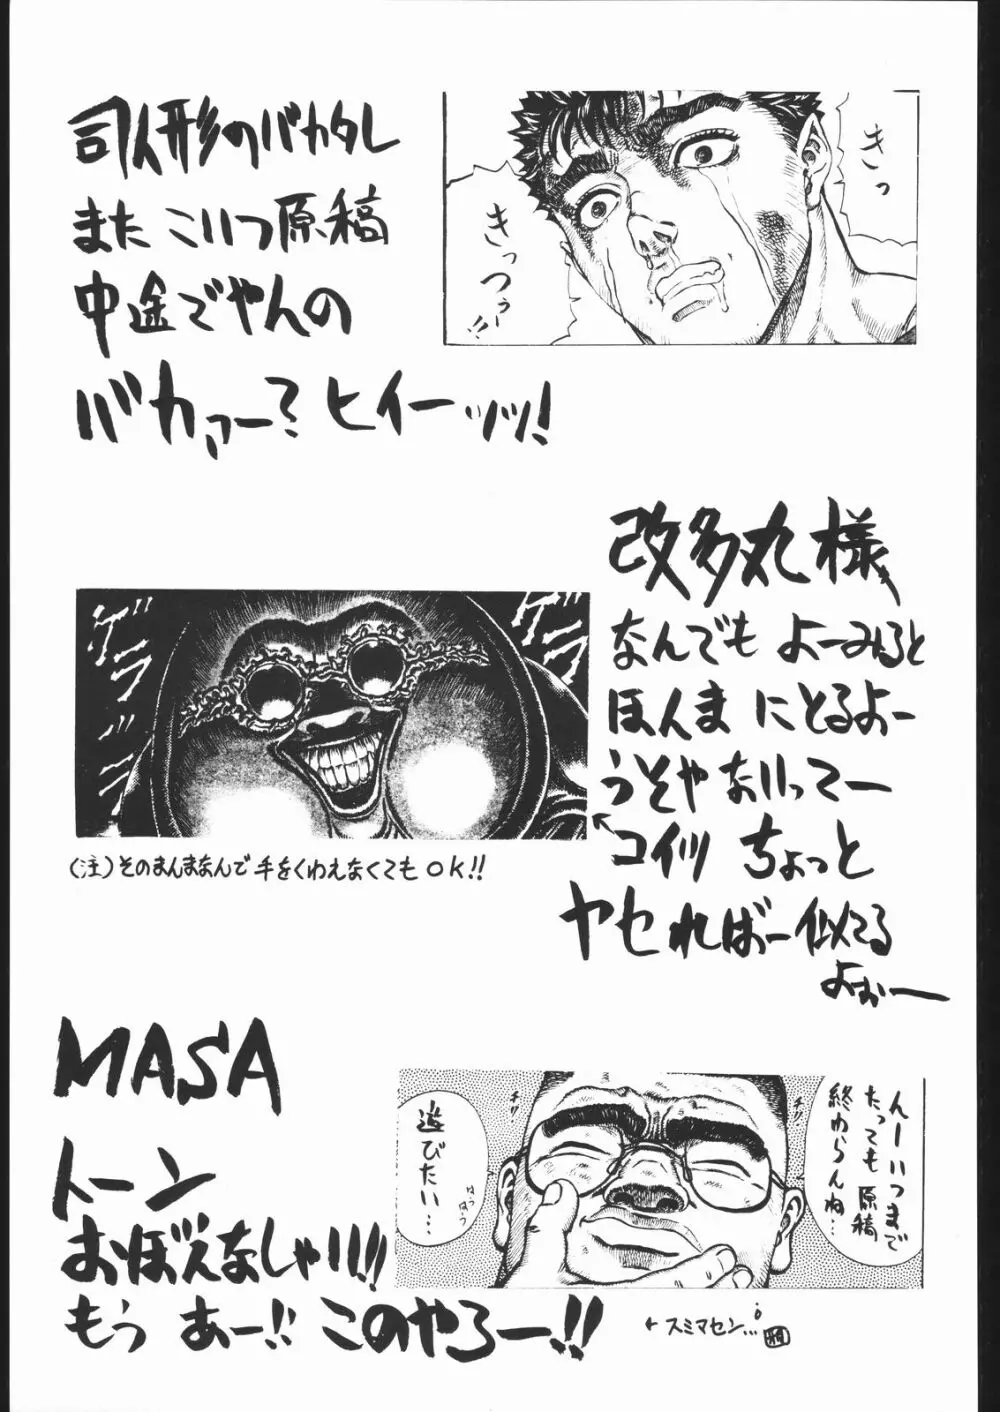 司人形のバカタレ
また こいつ原稿
中途でやんの
バカァー? ヒイーッッ!
きっ
きっつぅー!!
改多丸様
なんでも よーみると
ほんま にとるよー
うそやないってー
コイツ ちょっと
ヤセればー似てる
よぉー
ゲラゲラ
ゲラゲラ
(注)そのまんまなんで手をくわえなくてもOK!!
MASA
トーン
おぼえなしゃい!!
もう あー!! このやろー!!
んーいつまで
たっても原稿
終わらんね…
遊びたい…
はうはう
チリ
チリ
←スミマセン…